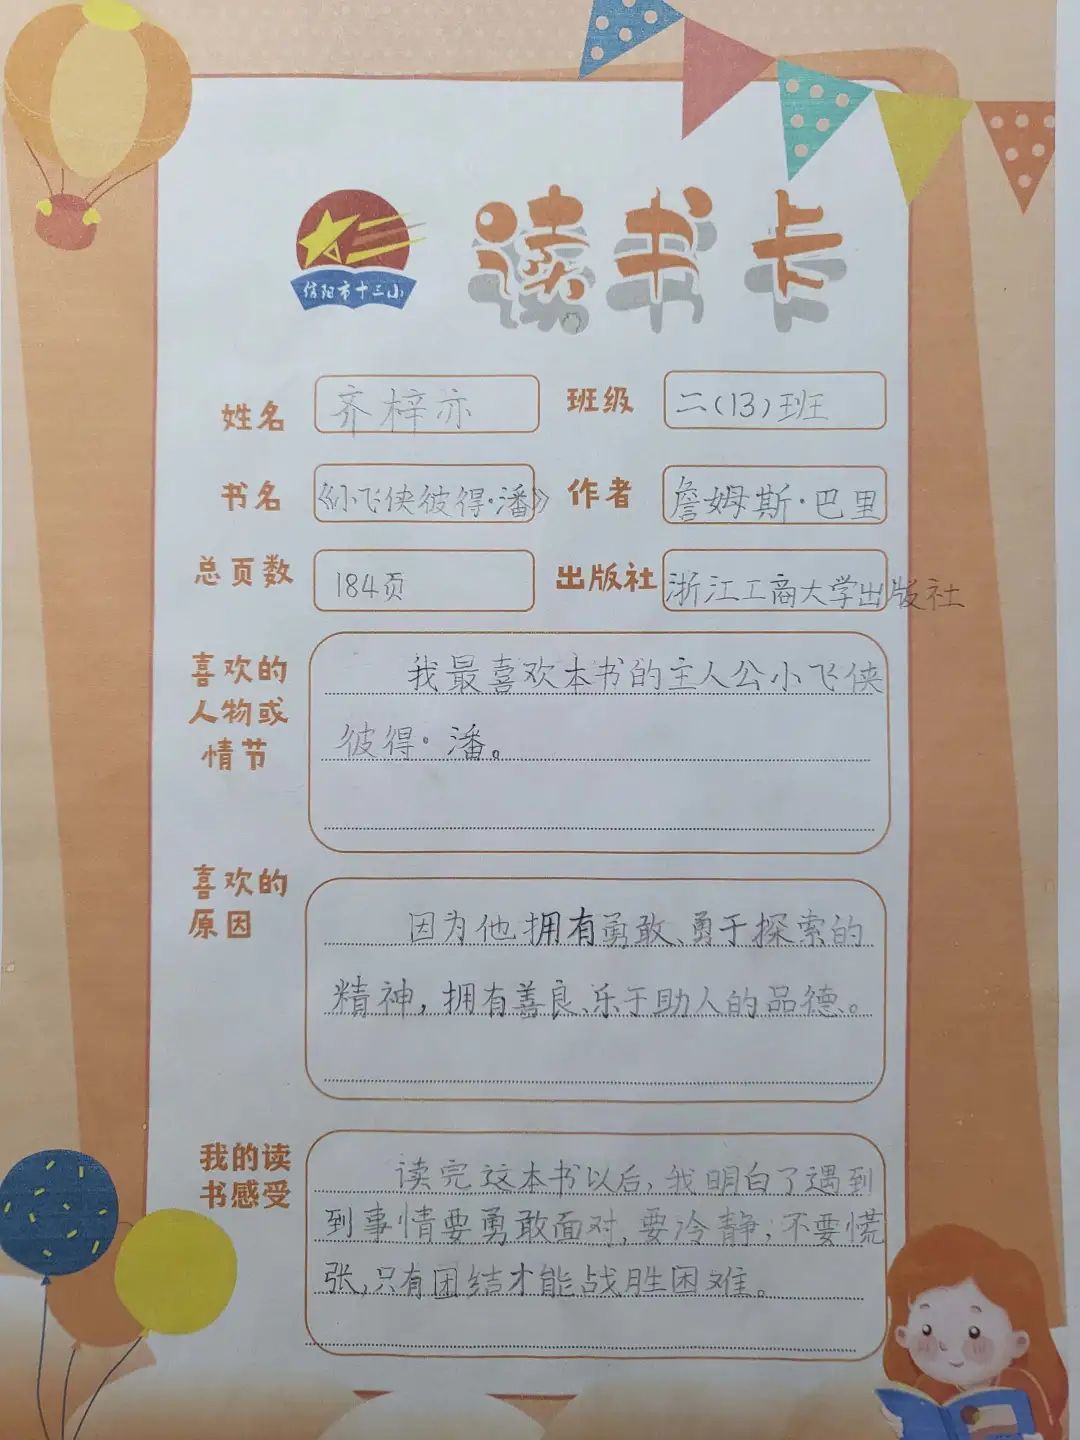 信阳市十三小
读书卡
姓名 齐梓亦 班级 二(13)班
书名 《小飞侠彼得·潘》 作者 詹姆斯·巴里
总页数 184页 出版社 浙江工商大学出版社
喜欢的
人物或
情节
我最喜欢本书的主人公小飞侠
彼得·潘。
喜欢的
原因
因为他拥有勇敢、勇于探索的
精神，拥有善良、乐于助人的品德。
我的读
书感受
读完这本书以后，我明白了遇到
到事情要勇敢面对，要冷静；不要慌
张，只有团结才能战胜困难。